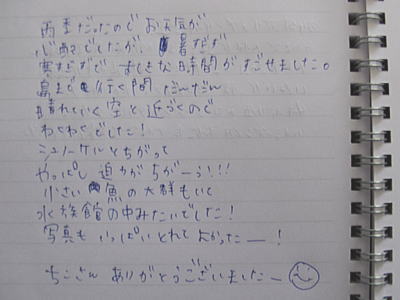 雨季だったので お天気が
心配でしたが、暑すぎず
寒すぎずで、すてきな時間がすごせました。
島まで行く間 だんだん
晴れていく空と近づくので
わくわくでした!
シュノーケルとちがって
やっぱし 迫力がちがーう!!!
小さい魚の大群もいて
水族館の中みたいでした!
写真も いっぱいとれて よかったー!
ちこさん ありがとうございましたー